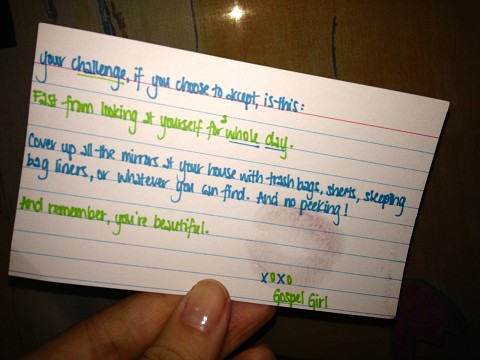 your challenge, if you choose to accept, is this:
Fast from looking at yourself for a whole day.
Cover up all the mirrors at your house with trash bags, sheets, sleeping
bag liners, or whatever you can find. And no peeking!
And remember, you're beautiful.
xoxo
Gospel Girl